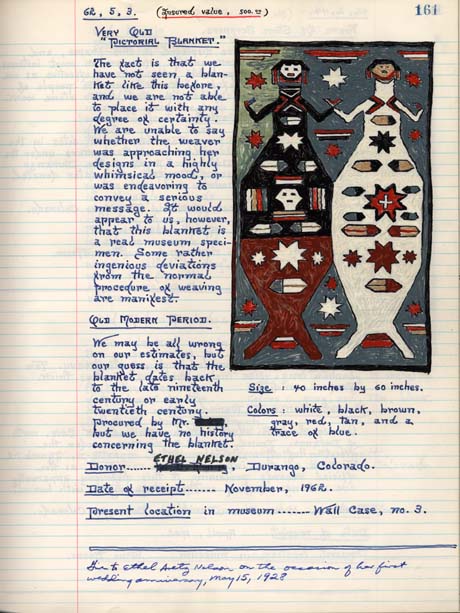 62, 5, 3. (Insured value, 500.00) 161
VERY OLD
"PICTORIAL BLANKET."
The fact is that we
have not seen a blan-
ket like this before,
and we are not able
to place it with any
degree of certainty.
We are unable to say
whether the weaver
was approaching her
designs in a highly
whimsical mood, or
was endeavoring to
convey a serious
message. It would
appear to us, however,
that this blanket is
a real museum speci-
men. Some rather
ingenious deviations
from the normal
procedure of weaving
are manifest.
OLD MODERN PERIOD.
We may be all wrong
on our estimates, but
our guess is that the
blanket dates back
to the late nineteenth
century or early
twentieth century.
Procured by Mr.
but we have no history
concerning the blanket.
Size : 40 inches by 60 inches.
Colors : white, black, brown,
gray, red, tan, and a
trace of blue.
ETHEL NELSON
Donor...... , Durango, Colorado.
Date of receipt....... November, 1962.
Present location in museum ....... Wall Case, no. 3.
to Ethel Nelson on the occasion of her first
wedding anniversary, May 15, 1928